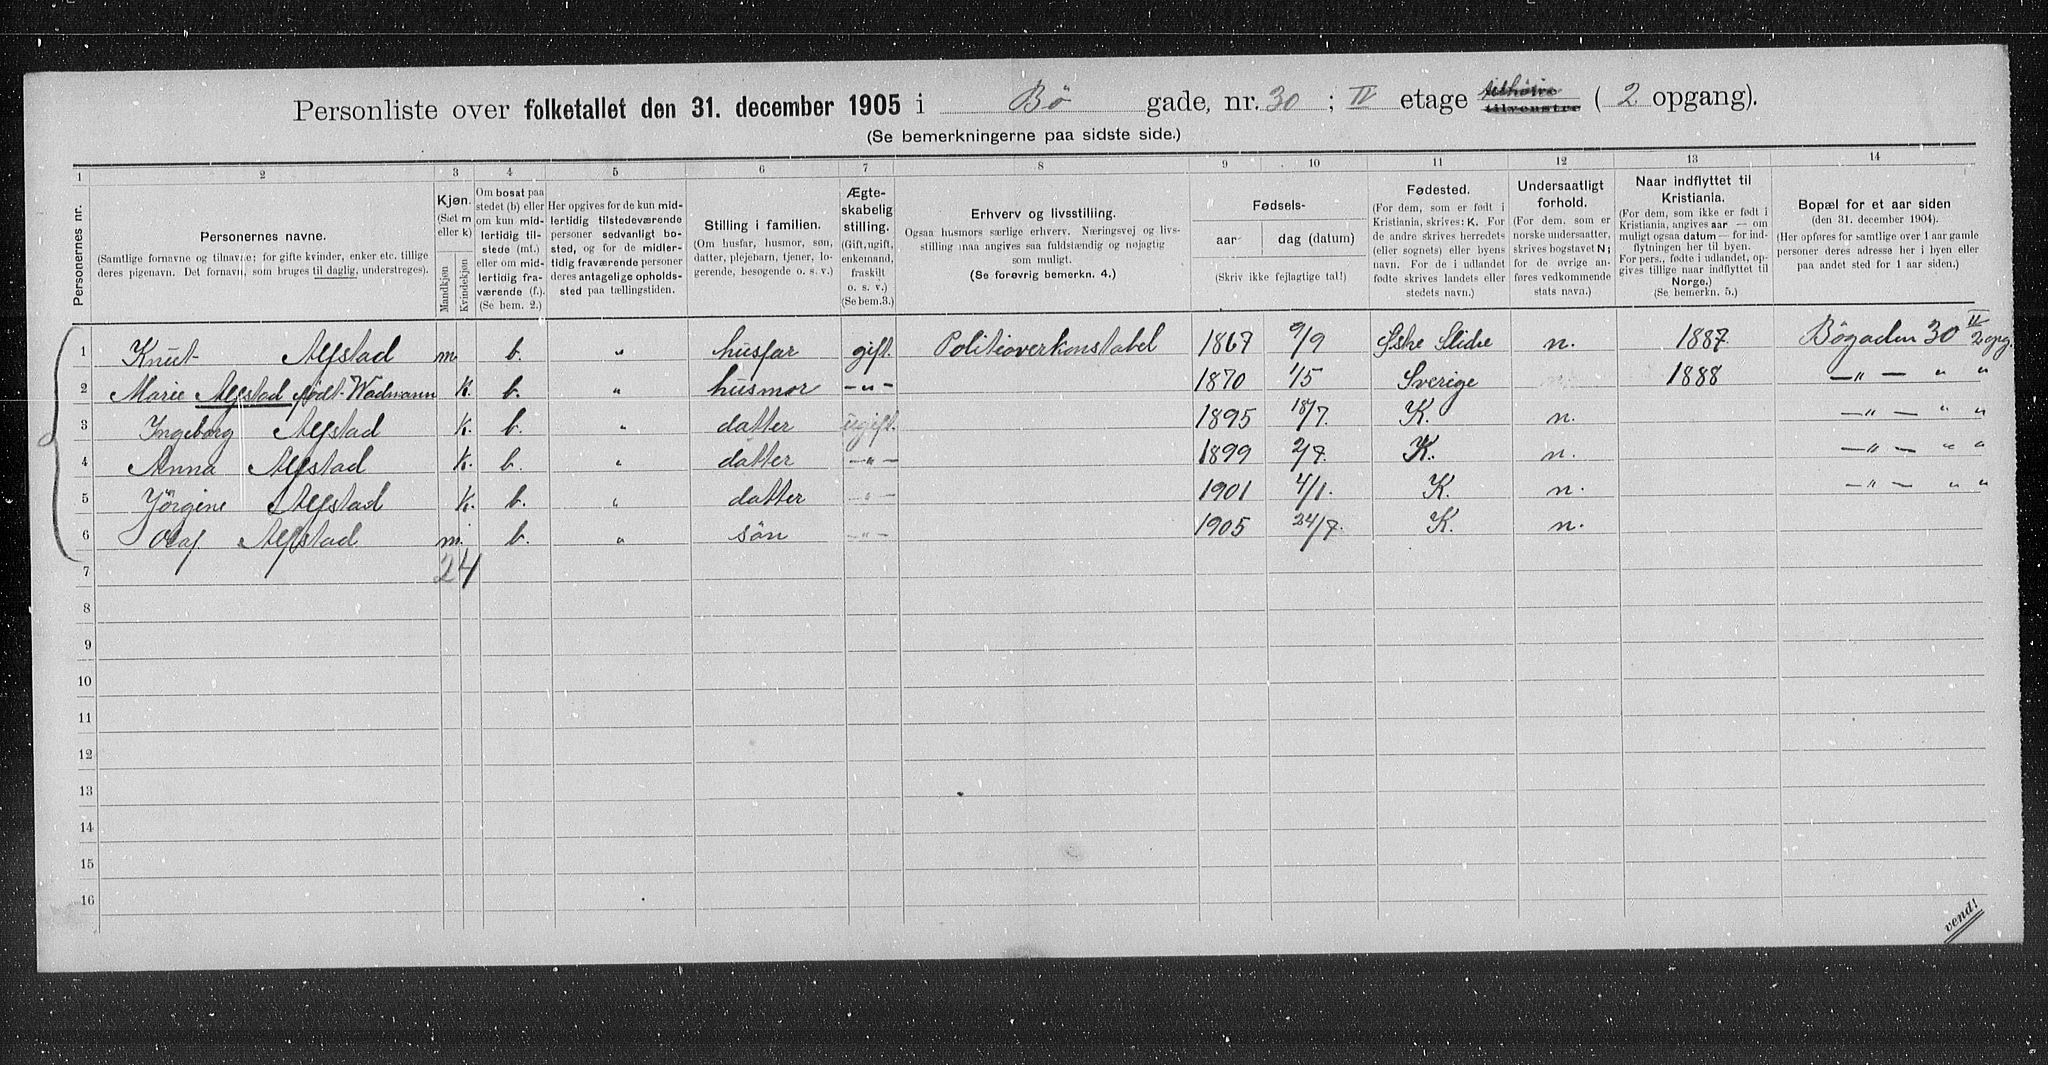 Personliste over folketallet den 31. december 1905 i Bø gade, nr. 30 ; IV etage tilhøire tilvenstre ( 2 opgang).
(Se bemerkningerne paa sidste side.)
1 2 3 4 5 6 7 8 9 10 11 12 13 14
Personernes nr.
Personernes navne.
(Samtlige fornavne og tilnavne; for gifte kvinder, enker etc. tillige
deres pigenavn. Det fornavn, som bruges til daglig, understreges).
Kjøn.
(Sæt m
eller k)
Mandkjøn
Kvindekjøn
Om bosat paa
stedet (b) eller
om kun mid-
lertidig til-
stede (mt.)
eller om mid-
lertidig fra-
værende (f.).
(Se bem. 2.)
Her opgives for de kun mid-
lertidig tilstedeværende
personer sedvanligt bo-
sted, og for de midler-
tidig fraværende personer
deres antagelige opholds-
sted paa tællingstiden.
Stilling i familien.
(Om husfar, husmor, søn,
datter, plejebarn, tjener, lo-
gerende, besøgende o. s. v.)
Ægte-
skabelig
stilling.
(Gift, ugift,
enkemand,
fraskilt
o. s. v.)
(Se bem.3.)
Erhverv og livsstilling.
Ogsaa husmors særlige erhverv. Næringsvej og livs-
stilling maa angives saa fuldstændig og nøjagtig
som muligt.
(Se forøvrig bemerkn. 4.)
Fødsels-
aar
dag (datum)
(Skriv ikke fejlagtige tal!)
Fødested.
(For dem, som er født i
Kristiania, skrives: K. For
de andre skrives herredets
(eller sognets) eller byens
navn. For de i udlandet
fødte skrives landets eller
stedets navn.)
Undersaatligt
forhold.
(For dem, som er
norske undersaatter,
skrives bogstavet N;
for de øvrige an-
føres vedkommende
stats navn.)
Naar indflyttet til
Kristiania.
(For dem, som ikke er født i
Kristiania, angives aar — om
muligt ogsaa datum — for ind-
flytningen her til byen.
For pers., fødte i udlandet, op-
gives tillige naar indflyttet til
Norge.)
(Se bemerkn. 5.)
Bopæl for et aar siden
(den 31. december 1904).
(Her opføres for samtlige over 1 aar gamle
personer deres adresse her i byen eller
paa andet sted for 1 aar siden.)
1 Knut Alfstad m b. " husfar gift. Politioverkonstabel 1867 9/9 Slidre n. 1887 Bøgaden 30 II 2 opg.
2 Marie Alfstad født Wadmann k. b. " husmor —"— 1870 1/5 Sverige 1888 —"— " "
3 Ingeborg Alfstad k. b. " datter ugift. 1895 18/7. K. n. —"— " "
4 Anna Alfstad k. b. " datter —"— 1899 2/7. K. n. —"— " "
5 Jörgine Alfstad k. b. " datter —"— 1901 4/1. K. n. —"— " "
6 Olaf Alfstad m. b. " søn —"— 1905 24/7. K. n.
7 24
8
9
10
11
12
13
14
15
16
vend!